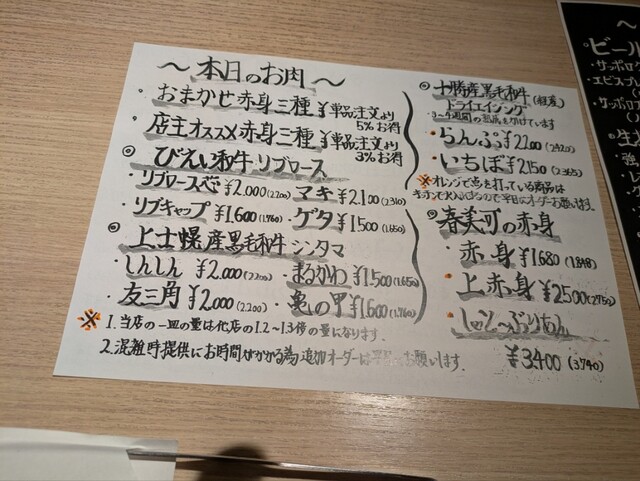 ～本日のお肉～
おまかせ赤身三種 ¥単品注文より
5%お得
店主オススメ赤身三種 ¥単品注文より
3%お得
◎びえい和牛リブロース
リブロース芯 ¥2.000(2.200) マキ ¥2.100(2310)
リブキャップ ¥1.600(1.760) ゲタ ¥1500(1.650)
◎上士幌産黒毛和牛シンタマ
・しんしん ¥2.000(2.200) ・まるかわ ¥1.500(1.650)
・友三角 ¥2.000(2.200) ・亀の甲 ¥1.600(1.760)
※1.当店の一皿の量は他店の1.2～1.3倍の量になります。
2.混雑時提供にお時間がかかる為追加オーダーは お願いします.
◎十勝産黒毛和牛(経産)
ドライエイジング
3～4週間の熟成を かけています
・らんぷ ¥2200(2420)
・いちぼ ¥2.150(2365)
※オレンジで点を打っている商品は
オーダーお願いします.
◎春美町の赤身
・赤身 ¥1680(1.848)
・上赤身 ¥2500(2750)
¥3.400(3740)
～
ビール
・サッポロ
・エビス
・サッポロ